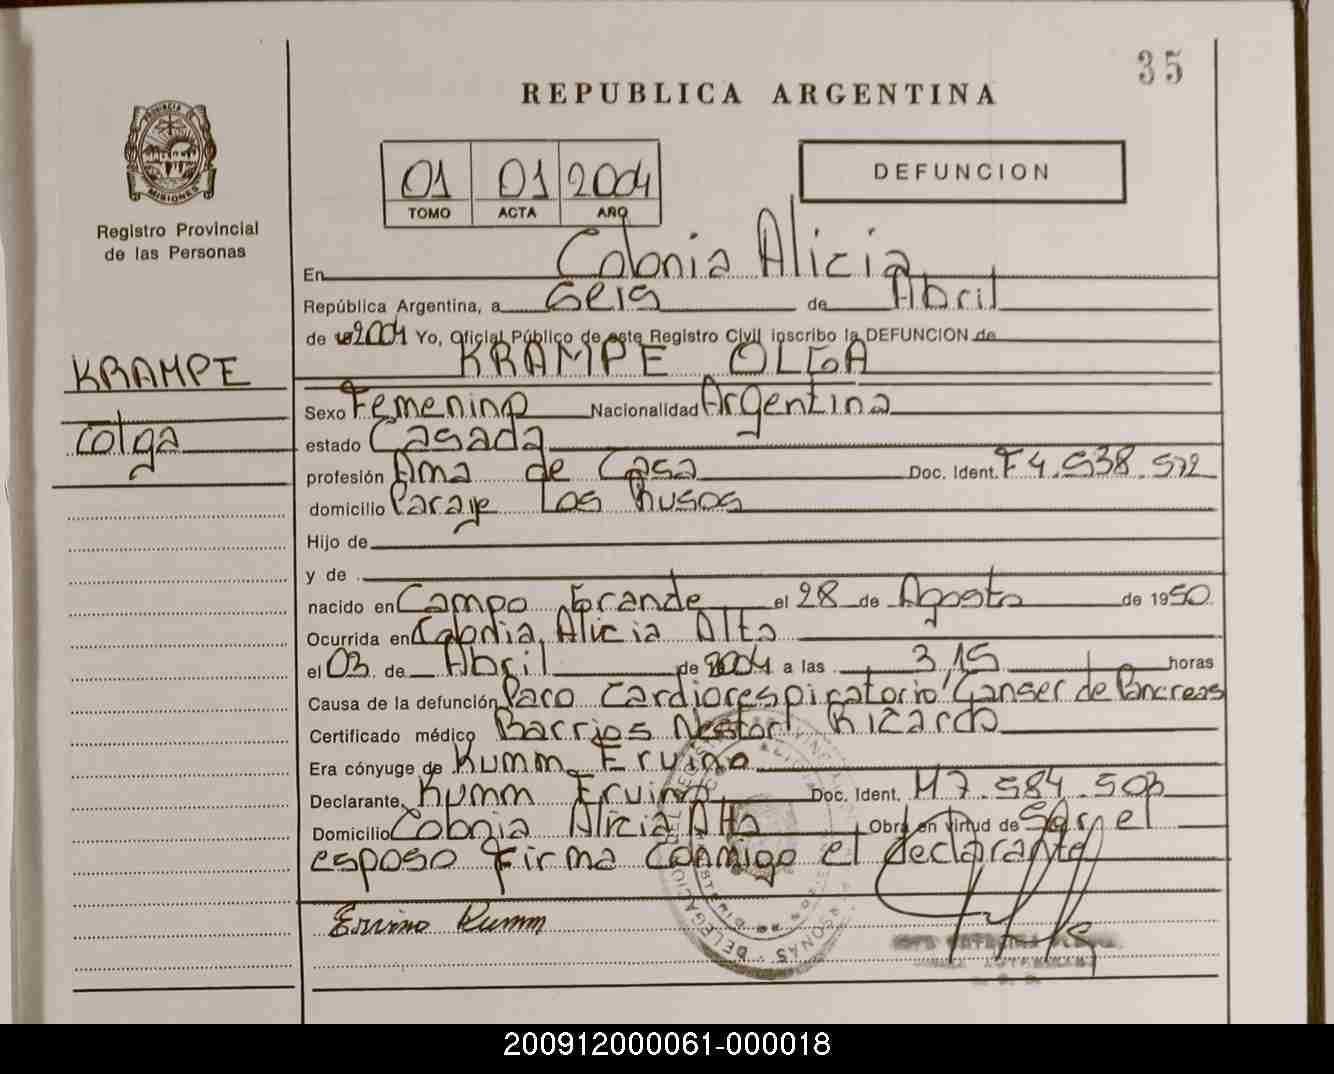 35
REPUBLICA ARGENTINA
PROVINCIA DE MISIONES
Registro Provincial
de las Personas
01 01 2004
TOMO ACTA AÑO
DEFUNCION
En Colonia Alicia
República Argentina, a Seis de Abril
de 2004 Yo, Oficial Público de este Registro Civil inscribo la DEFUNCION de
KRAMPE OLGA
KRAMPE
Olga
Sexo Femenino Nacionalidad Argentina
estado Casada
profesión Ama de Casa Doc. Ident. F4.538.572
domicilio Paraje Los Rusos
Hijo de
y de
nacido en Campo Grande el 28 de Agosto de 1950
Ocurrida en Colonia Alicia Alta
el 03 de Abril de 2004 a las 3,15 horas
Causa de la defunción Paro Cardiorespiratorio, Canser de Pancreas
Certificado médico Barrios Nestor Ricardo
Era cónyuge de Kumm Ervino
Declarante Kumm Ervino Doc. Ident. M7.584.503
Domicilio Colonia Alicia Alta Obra en virtud de Ser el
esposo firma conmigo el declarante
Ervino Kumm
200912000061-000018